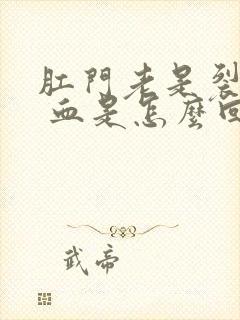 肛門老是裂
血是怎麼回
武帝